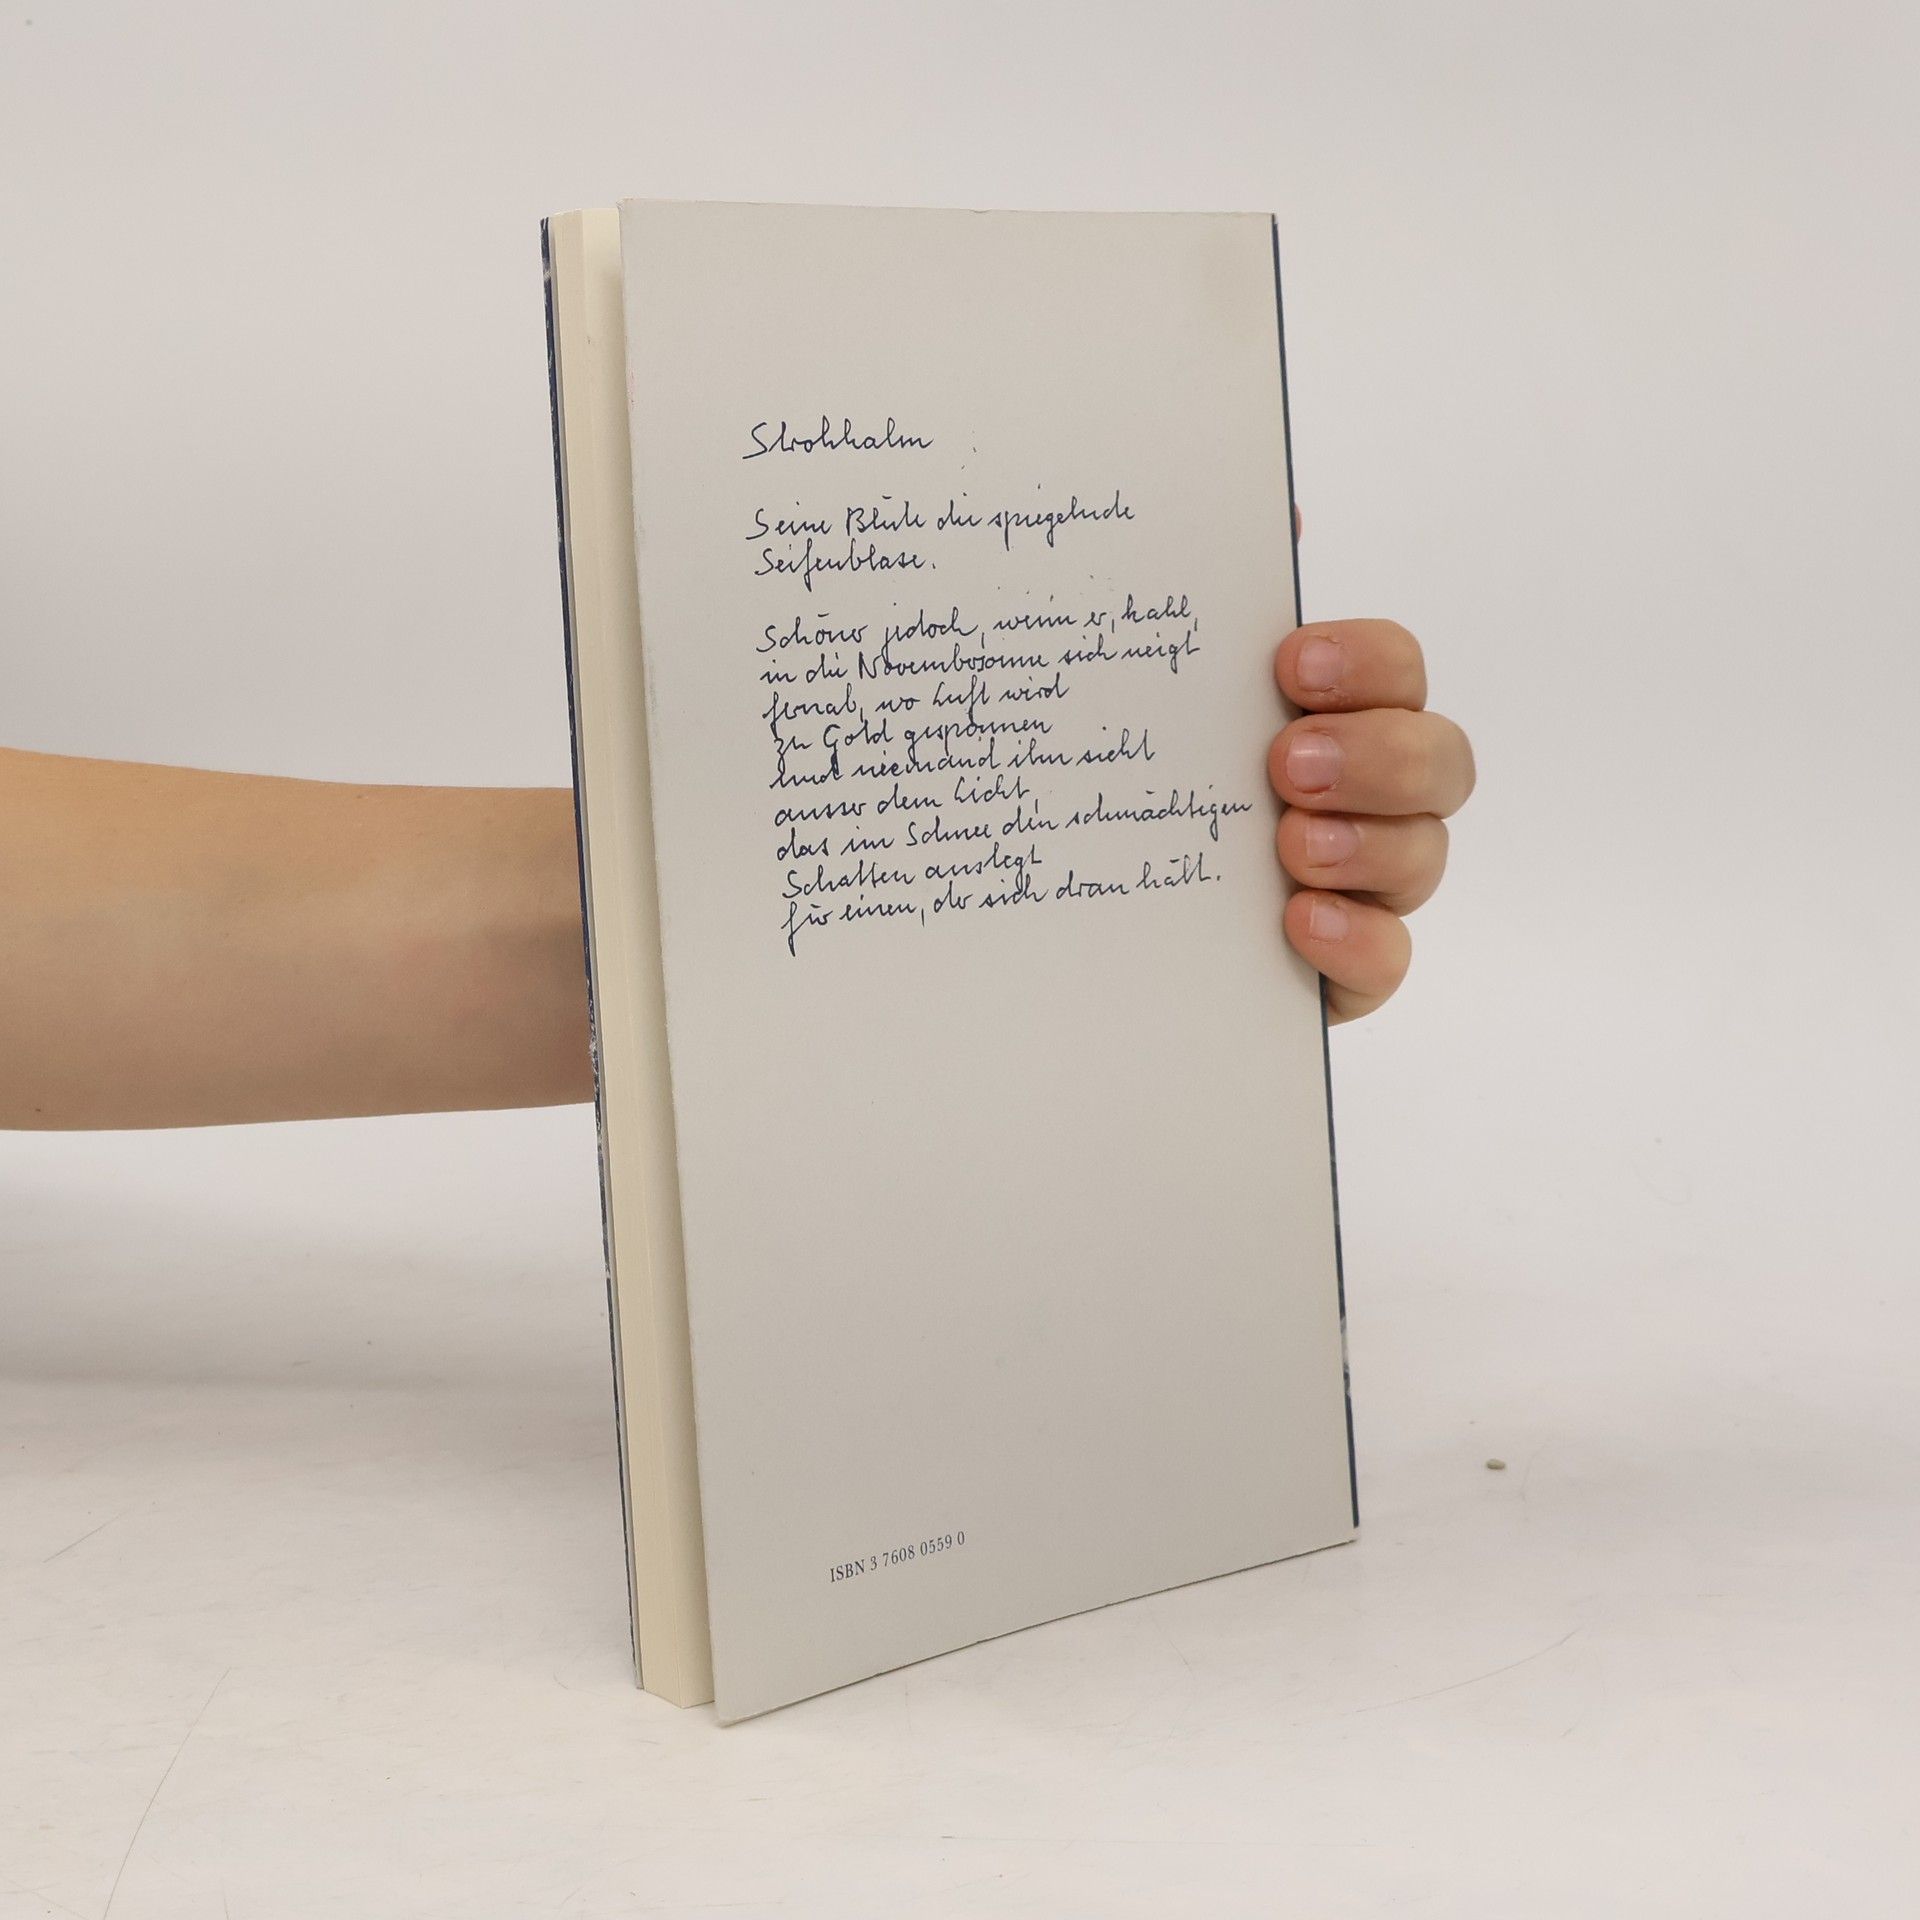 Strohhalm
Seine Blüte die spiegelnde
Seifenblase.
Schöner jedoch, wenn er, kahl,
in die Novembersonne sich neigt
fernab, wo Luft wird
zu Gold gesponnen
und niemand ihn sieht
ausser dem Licht,
das im Schnee den schmächtigen
Schatten auslegt
für einen, der sich dran hält.
ISBN 3 7608 0559 0